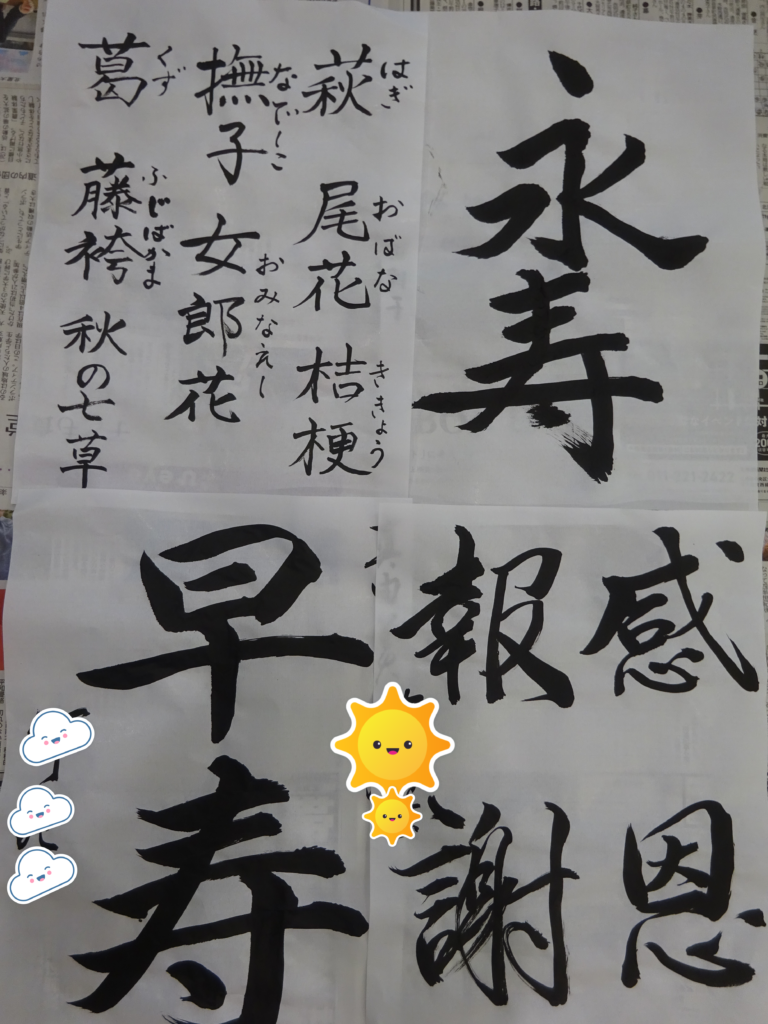 永寿
萩 尾花 桔梗
はぎ おばな ききょう
撫子 女郎花
なでしこ おみなえし
葛 藤袴 秋の七草
くず ふじばかま
感恩
報謝
早寿